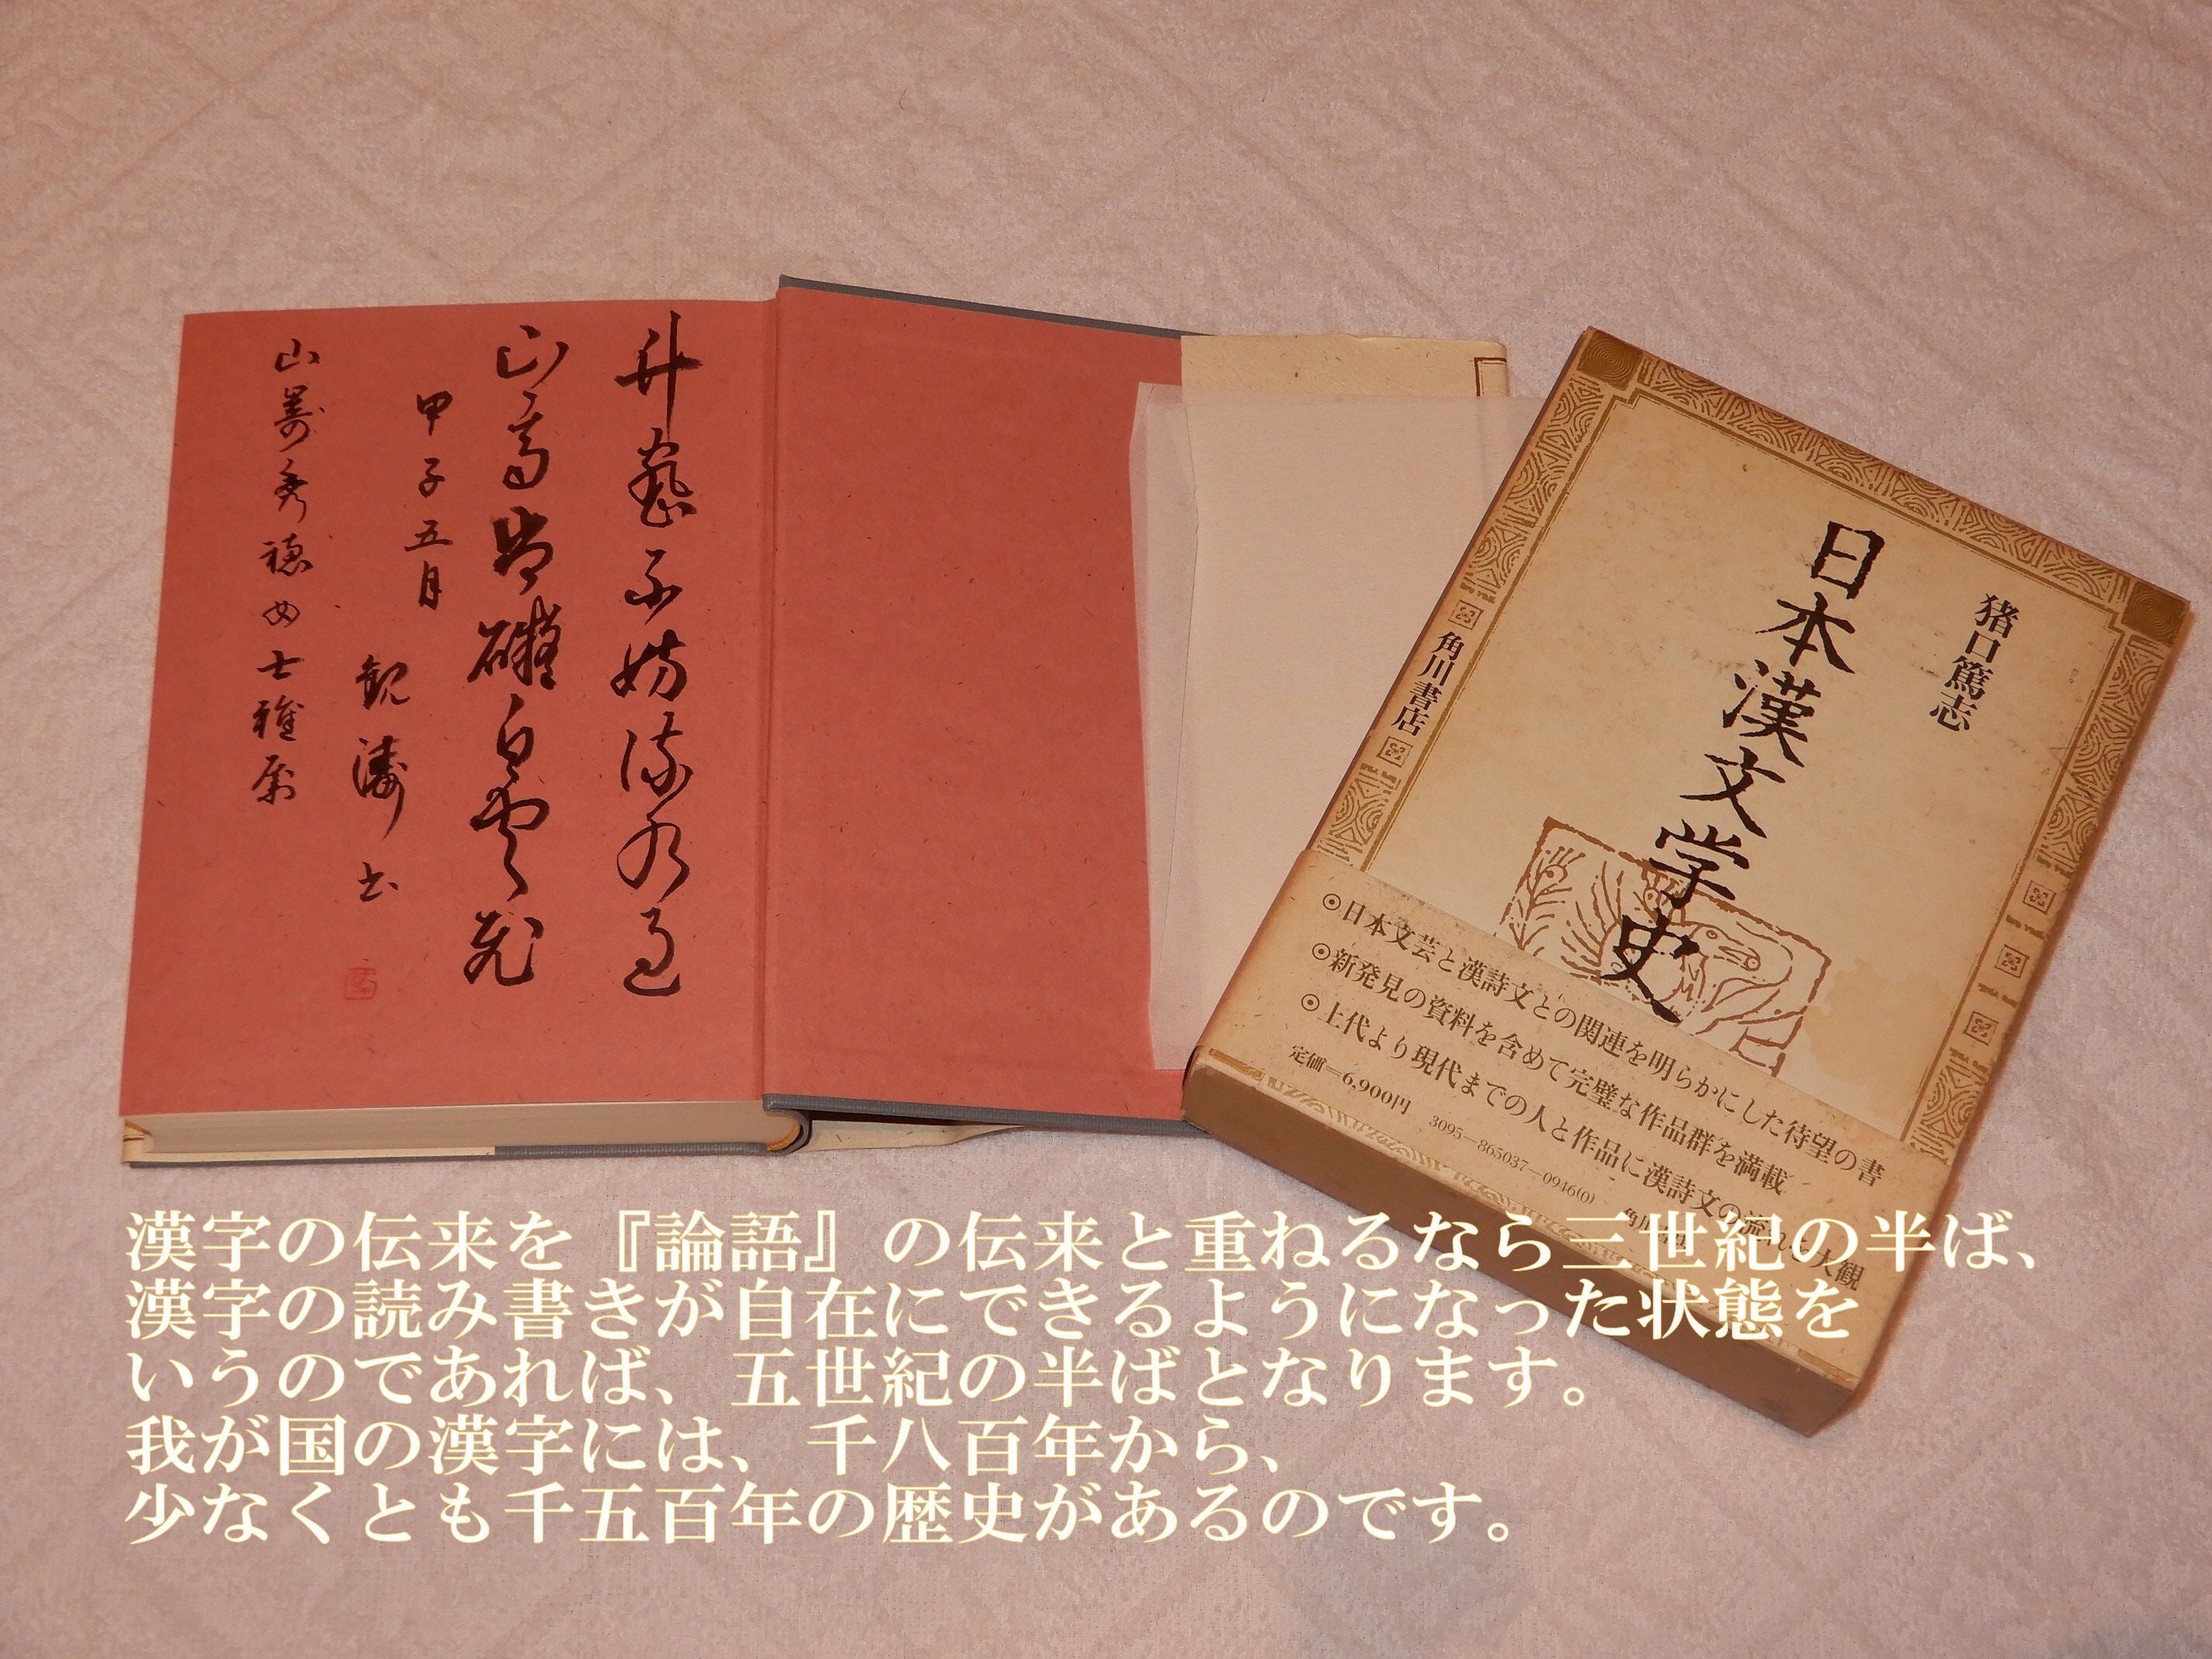 竹密不妨流水過
山高豈礙白雲飛
甲子五月
観濤書
山嵜秀穂女士雅属
猪口篤志
日本漢文学史
角川書店
⦿日本文芸と漢詩文との関連を明らかにした待望の書
⦿新発見の資料を含めて完璧な作品群を満載
⦿上代より現代までの人と作品に漢詩文の流れを大観
定価=6,900円 3095—865037—0946(0) 角川
漢字の伝来を『論語』の伝来と重ねるなら三世紀の半ば、
漢字の読み書きが自在にできるようになった状態を
いうのであれば、五世紀の半ばとなります。
我が国の漢字には、千八百年から、
少なくとも千五百年の歴史があるのです。